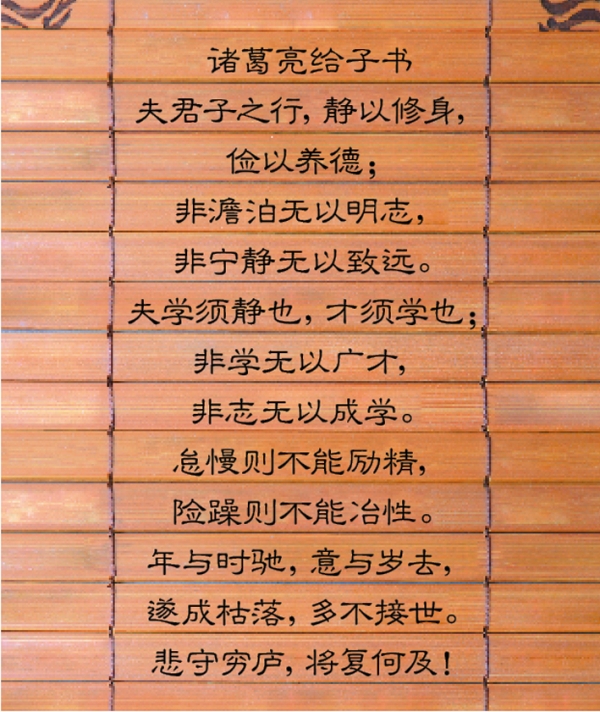 诸葛亮给子书
夫君子之行，静以修身，
俭以养德；
非澹泊无以明志，
非宁静无以致远。
夫学须静也，才须学也；
非学无以广才，
非志无以成学。
怠慢则不能励精，
险躁则不能冶性。
年与时驰，意与岁去，
遂成枯落，多不接世。
悲守穷庐，将复何及！